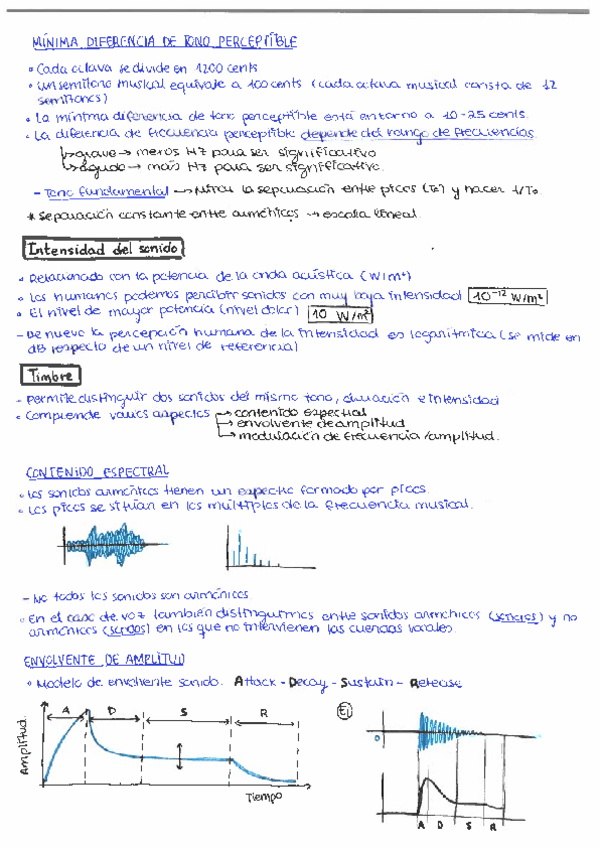 MÍNIMA DIFERENCIA DE TONO PERCEPTIBLE
• Cada octava se divide en 1200 cents
• Un semitono musical equivale a 100 cents (cada octava musical consta de 12
semitonos)
• La mínima diferencia de tono perceptible está entorno a 10-25 cents.
• La diferencia de frecuencia perceptible depende del rango de frecuencias.
↳ grave → menos Hz para ser significativo
↳ agudo → más Hz para ser significativo.
- Tono fundamental → Mirar la separación entre picos (To) y hacer 1/To.
* Separación constante entre armónicos → escala lineal.
Intensidad del sonido
• Relacionado con la potencia de la onda acústica (W/m²)
• Los humanos podemos percibir sonidos con muy baja intensidad 10⁻¹² W/m²
• El nivel de mayor potencia (nivel dolor) 10 W/m²
- De nuevo la percepción humana de la intensidad es logarítmica (se mide en
dB respecto de un nivel de referencia)
Timbre
- Permite distinguir dos sonidos del mismo tono, duración e intensidad
• Comprende varios aspectos → contenido espectral
→ envolvente de amplitud
→ modulación de frecuencia/amplitud.
CONTENIDO ESPECTRAL
• Los sonidos armónicos tienen un espectro formado por picos.
• Los picos se sitúan en los múltiplos de la frecuencia musical.
- No todos los sonidos son armónicos
• En el caso de voz también distinguimos entre sonidos armónicos (sonoros) y no
armónicos (sordos) en los que no intervienen las cuerdas vocales.
ENVOLVENTE DE AMPLITUD
• Modelo de envolvente sonido. Attack - Decay - Sustain - Release
A D S R
Amplitud.
Tiempo
Ej
0
A D S R